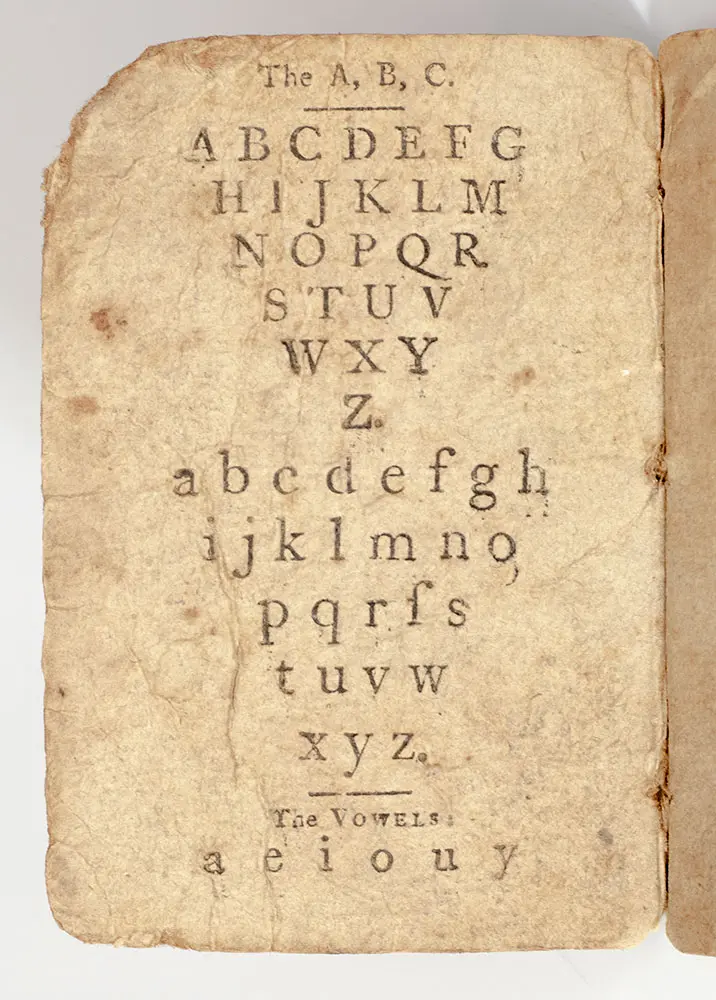 The A, B, C.
A B C D E F G
H I J K L M
N O P Q R
S T U V
W X Y
Z.
a b c d e f g h
i j k l m n o
p q r ſ s
t u v w
x y z.
The VOWELS:
a e i o u y